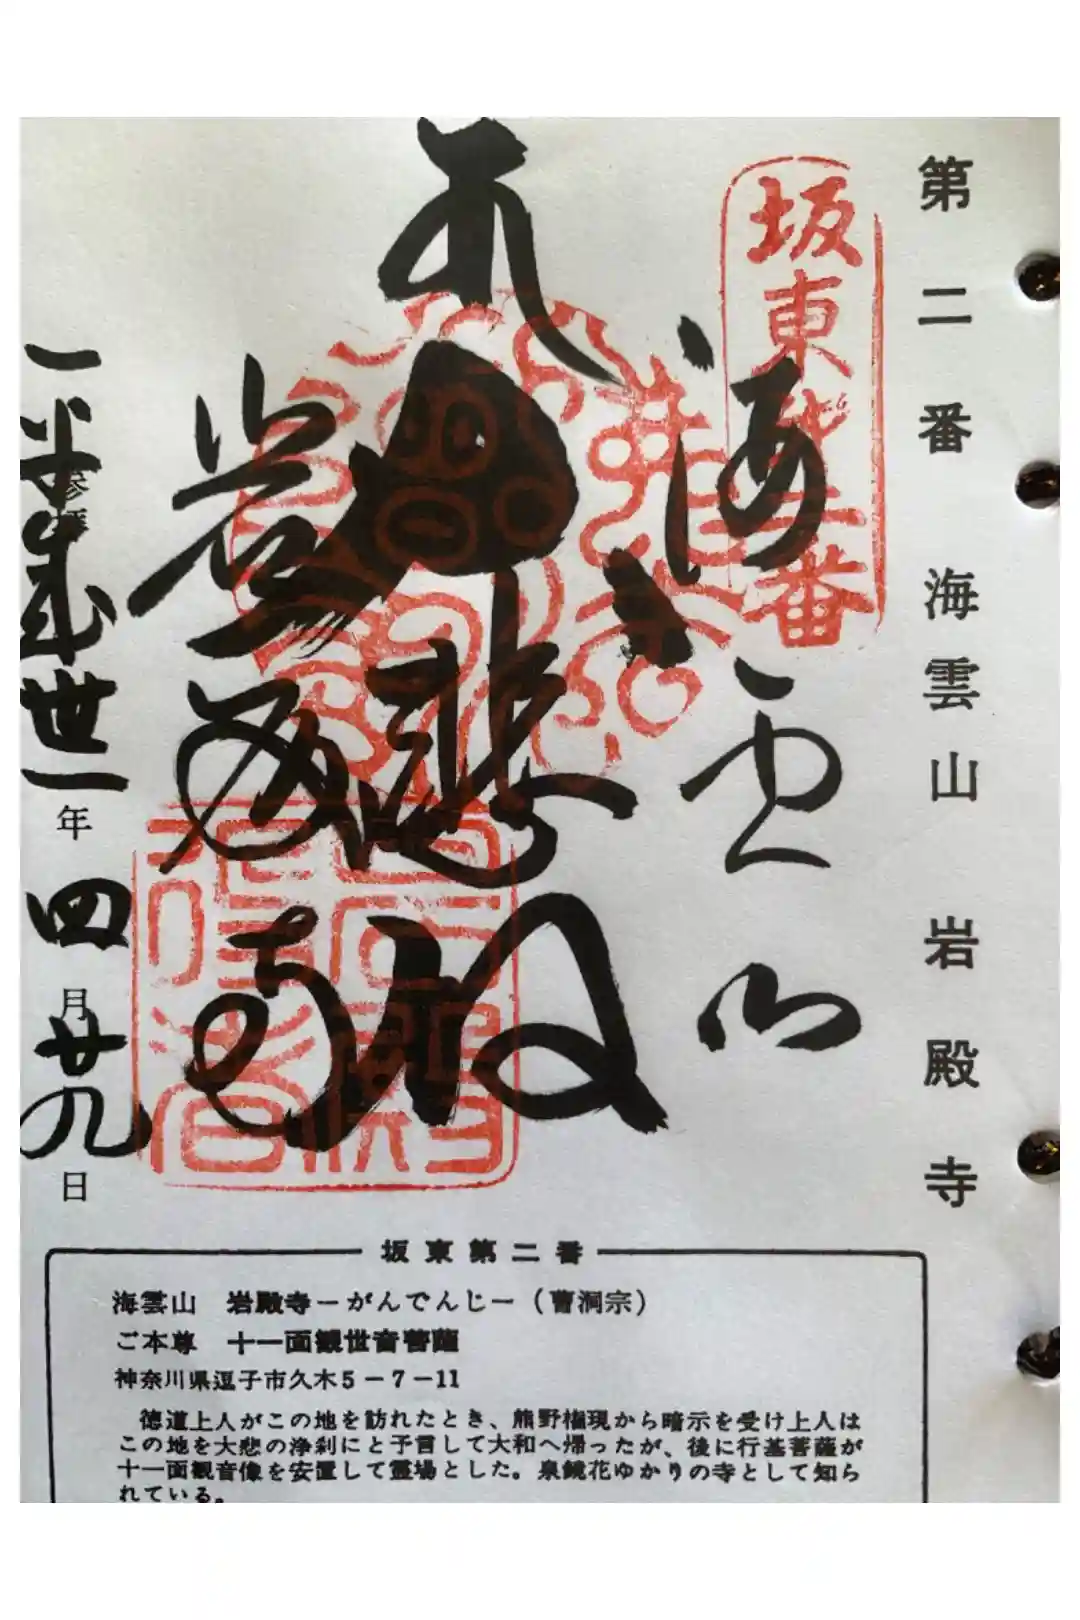 第二番 海雲山 岩殿寺
坂東第二番
海雲山
大悲殿
岩殿寺
平成丗一年四月廿九日
坂東第二番
海雲山 岩殿寺－がんでんじ－（曹洞宗）
ご本尊 十一面観世音菩薩
神奈川県逗子市久木5－7－11
徳道上人がこの地を訪れたとき、熊野権現から暗示を受け上人は
この地を大悲の浄刹にと予言して大和へ帰ったが、後に行基菩薩が
十一面観音像を安置して霊場とした。泉鏡花ゆかりの寺として知ら
れている。